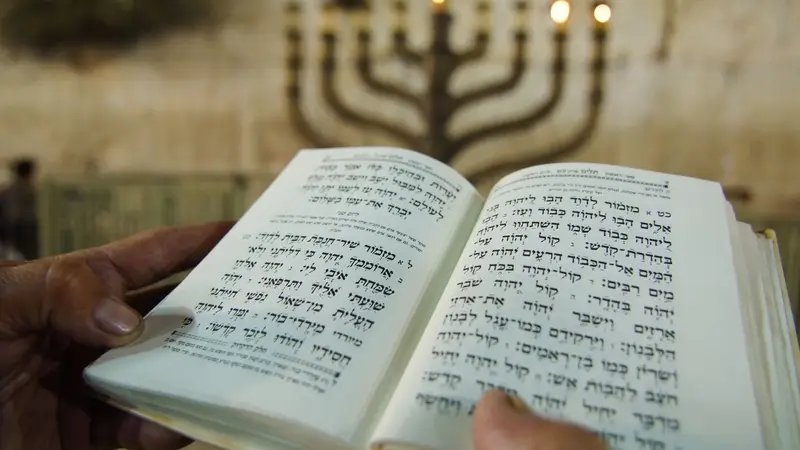 כט א מזמור לדוד הבו ליהוה בני
אלים הבו ליהוה כבוד ועז: הבו
ליהוה כבוד שמו השתחוו ליהוה
בהדרת־קדש: קול יהוה על־
המים אל־הכבוד הרעים יהוה על־
מים רבים: קול־יהוה בכח קול
יהוה בהדר: קול יהוה שבר
ארזים וישבר יהוה את־ארזי
הלבנון: וירקידם כמו־עגל לבנון
ושריון כמו בן־ראמים: קול־יהוה
חצב להבות אש: קול יהוה יחיל
מדבר יחיל יהוה מדבר קדש:
קול יהוה ויחשף
יערות ובהיכלו כלו אמר כבוד:
יהוה למבול ישב וישב יהוה מלך
לעולם: יהוה עז לעמו יתן יהוה
יברך את־עמו בשלום:
ל א מזמור שיר־חנכת הבית לדוד:
ב ארוממך יהוה כי דליתני ולא־
שמחת איבי לי: יהוה אלהי
שועתי אליך ותרפאני: יהוה
העלית מן־שאול נפשי חייתני
מיורדי מירדי־בור: זמרו ליהוה
חסידיו והודו לזכר קדשו: